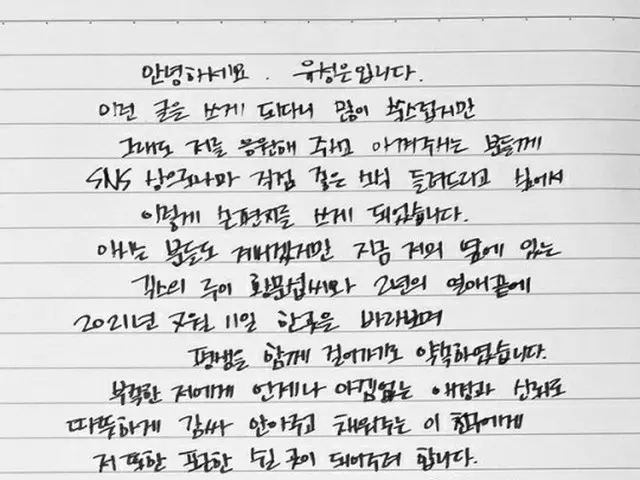 안녕하세요. 유성은입니다.
이런 글을 쓰게 되다니 많이 쑥스럽지만
그래도 저를 응원해 주시고 아껴주시는 분들께
SNS 상으로나마 직접 좋은 소식 들려드리고 싶어서
이렇게 손편지를 쓰게 되었습니다.
아시는 분들도 계시겠지만 지금 저의 옆에 있는
긱스의 루이 황문섭씨와 2년의 연애끝에
2021년 7월 11일 한곳을 바라보며
평생을 함께 걸어가기로 약속하였습니다.
부족한 저에게 언제나 아낌없는 애정과 신뢰로
따뜻하게 감싸 안아주고 채워주는 이 친구에게
저 또한 포근한 쉴 곳이 되어주려 합니다.